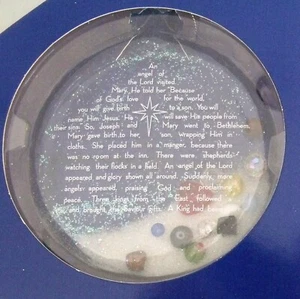 An
angel of
the Lord visited
Mary. He told her "Because
of God's love for the world,
you will give birth to a son. You will
name Him Jesus. He will save His people from
their sins. So, Joseph and Mary went to Bethlehem.
Mary gave birth to her son, wrapping Him in
cloths. She placed him in a manger, because there
was no room at the inn. There were shepherds
watching their flocks in a field. An angel of the Lord
appeared and glory shone all around. Suddenly, more
angels appeared, praising God and proclaiming
peace. Three kings from the East followed
and brought gifts. A King had